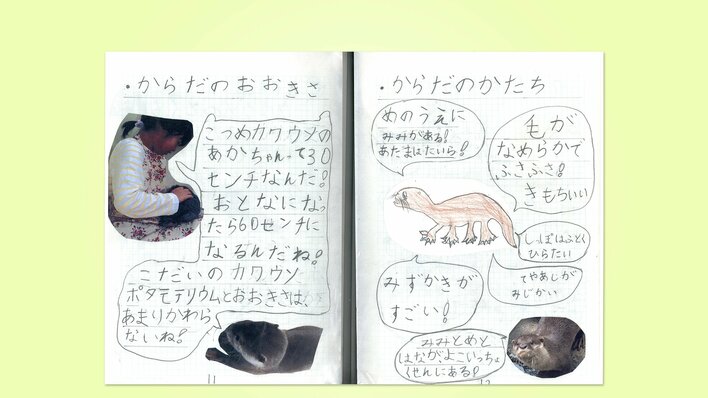 ・からだのおおきさ
こつめカワウソの
あかちゃんって30
センチなんだ！
おとなになっ
たら60センチに
なるんだね！
こだいのカワウソ
ポタモテリウムとおおきさは、
あまりかわら
ないね！
11
・からだのかたち
めのうえに
みみがある！
あたまはたいら！
毛が
なめらかで
ふさふさ！
きもちいい
しっぽはふとく
ひらたい
てやあしが
みじかい
みずかきが
すごい！
みみとめと
はながよこいっちょ
くせんにある！